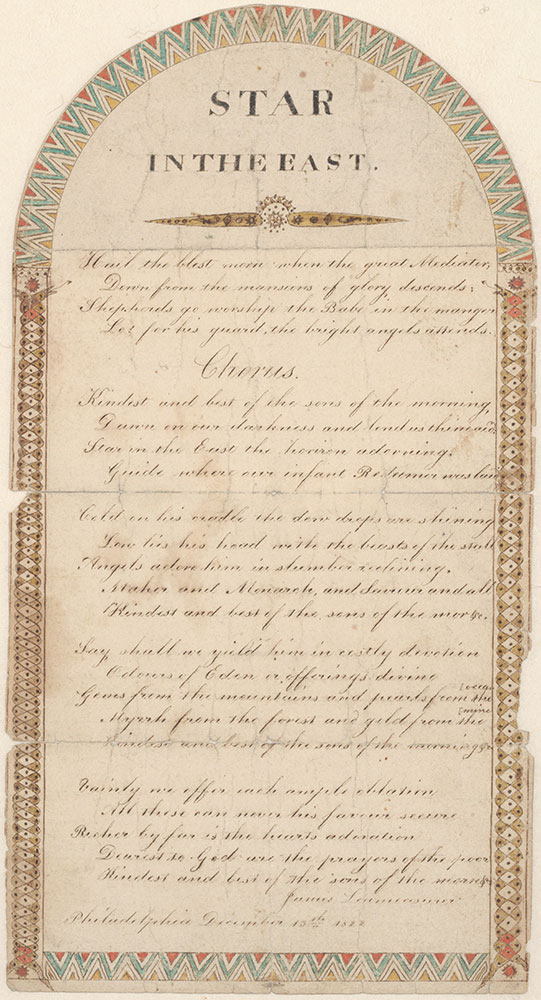 STAR
IN THE EAST.
Hail the blest morn when the great Mediator,
Down from the mansions of glory descends;
Shepherds go worship the Babe in the manger
Lo! for his guard, the bright angels attends.
Chorus.
Kindest and best of the sons of the morning,
Dawn on our darkness and lend us thine aid;
Star in the East the horizon adorning,
Guide where our infant Redeemer was laid
Cold on his cradle the dew drops are shining
Low lies his head with the beasts of the stall
Angels adore him in slumber reclining,
Maker and Monarch, and Saviour and all
Kindest and best of the sons of the mor &c.
Say shall we yield him in costly devotion
Odours of Eden or offerings divine
Gems from the mountains and pearls from the [ocean
Myrrh from the forest and gold from the [mine
Kindest and best of the sons of the morning &c
Vainly we offer each ample oblation
All these can never his favour secure
Richer by far is the hearts adoration
Dearest to God are the prayers of the poor
Kindest and best of the sons of the morn &c
James
Philadelphia December 13th 1822